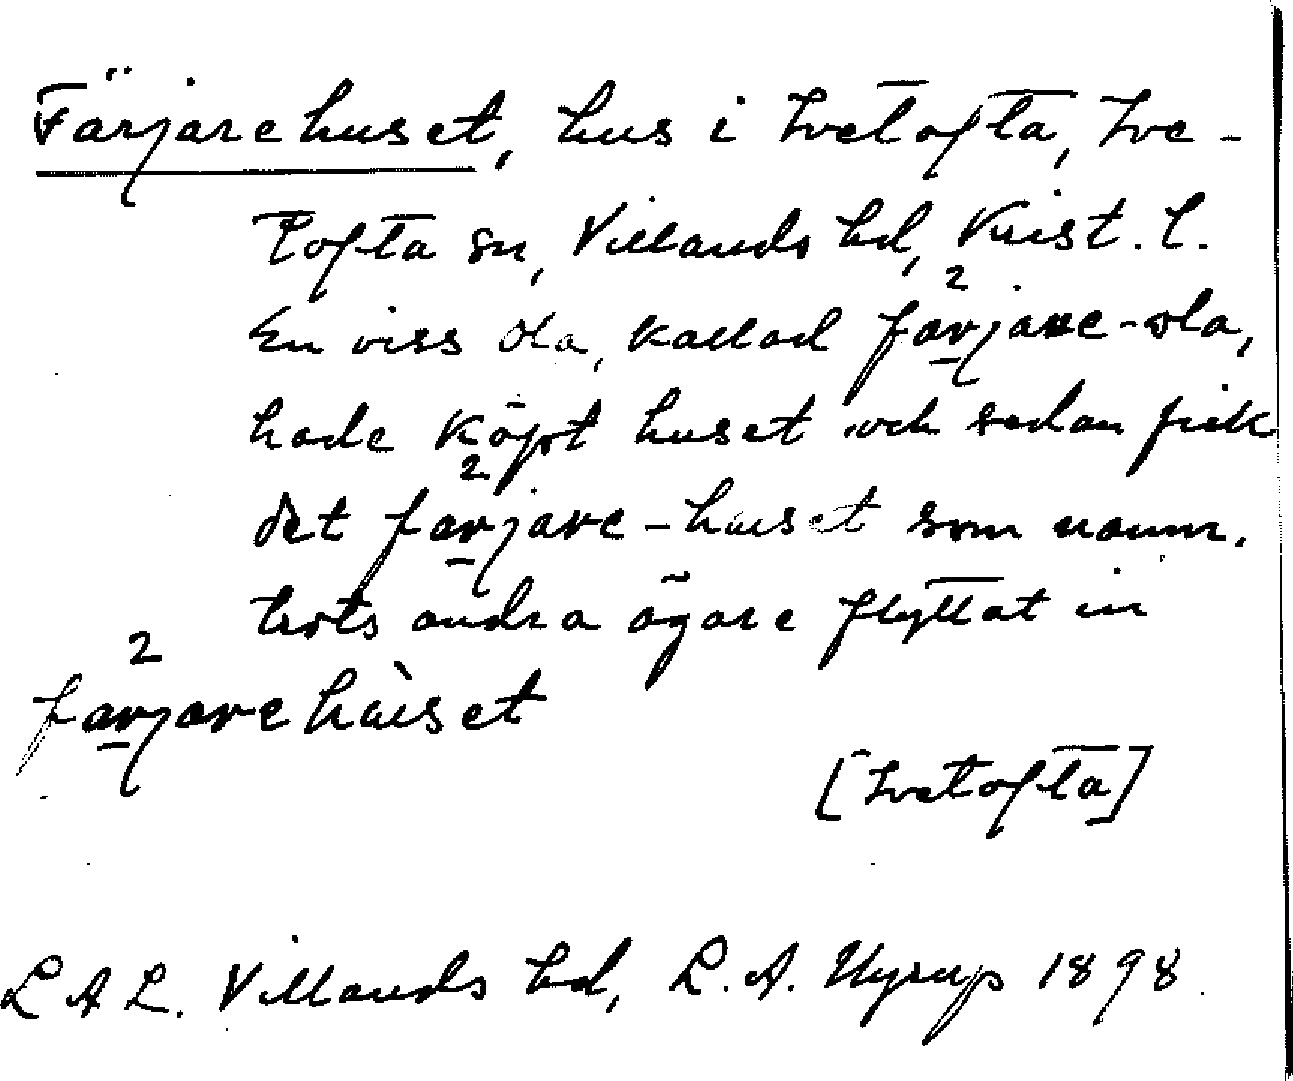 Färjarehuset, hus i Ivetofta, Ive-
tofta sn, Villands hd, Krist. l.
En viss Ola, kallad färjare-ola,
hade köpt huset och sedan fick
det färjare-huset som namn.
trots andra ägare flyttat in
färjarehúset
[Ivetofta]
L A L. Villands hd, L. A. Nyrup 1898